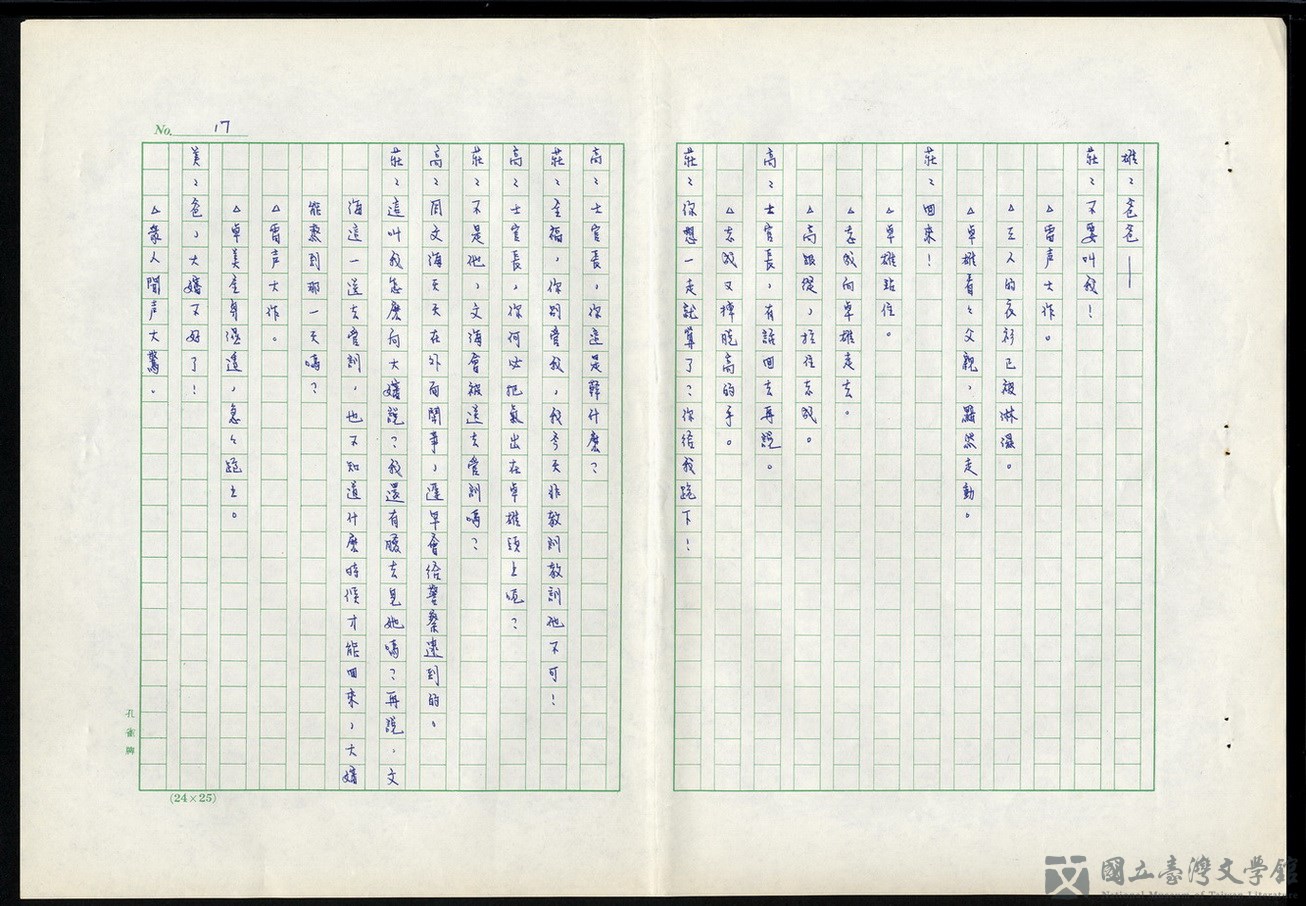 雄：爸爸——
莊：不要叫我！
△雷声大作。
△三人的衣衫已被淋濕。
△卓雄看々父親，黯然走動。
莊：回來！
△卓雄站住。
△志成向卓雄走去。
△高跟從，拉住志成。
△志成又掙脫高的手。
高：士官長，有話回去再說。
莊：你想一走就算了？你给我跪下！
No. 17
高：士官長，你這是幹什麼？
莊：全福，你别管我，我今天非教訓教訓他不可！
高：士官長，你何必把氣出在卓雄頭上呢？
莊：不是他，文海會被送去管訓嗎？
高：周文海天天在外面闹事，遲早會给警察逮到的。
莊：這叫我怎麽向大嬸說？我還有臉去見她嗎？再說，文
海這一送去管訓，也不知道什麽時候才能回來，大嬸
能熬到那一天嗎？
△雷声大作。
△卓美全身濕透，急々跑上。
美：爸，大嬸不好了！
△衆人聞声大驚。
孔雀牌
(24×25)
國立臺灣文學館
National Museum of Taiwan Literature